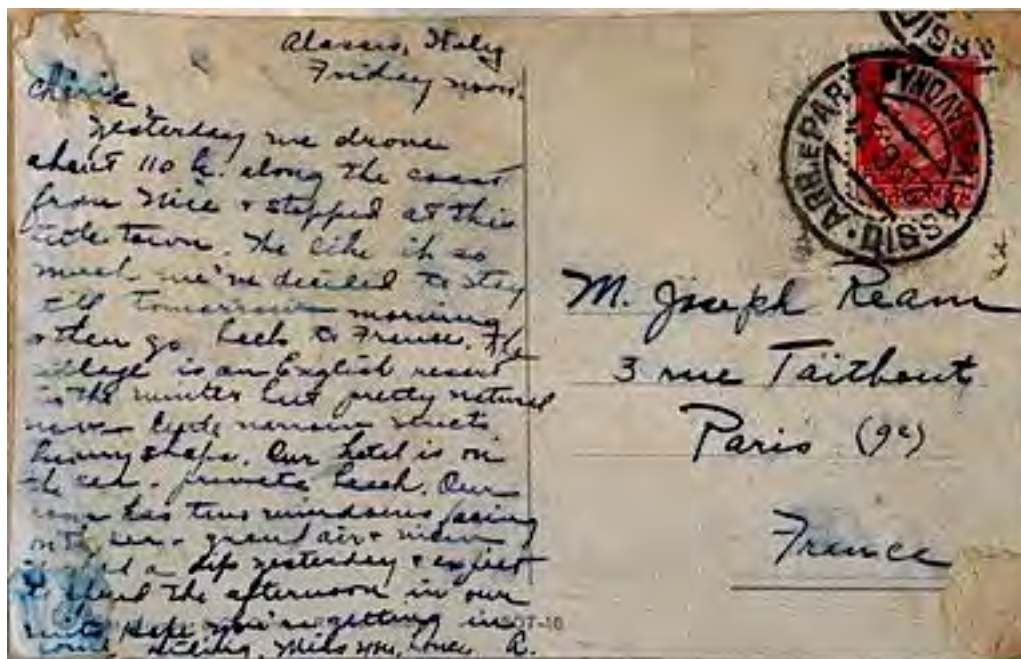 Alassio, Italy
Friday noon.
Chérie,
Yesterday we drove
about 110 k. along the coast
from Nice & stopped at this
little town. We like it so
much we've decided to stay
till tomorrow morning
& then go back to France. The
village is an English resort
in the winter but pretty natural
now — little narrow streets
funny shops. Our hotel is on
the sea - private beach. Our
room has two windows facing
onto sea - grand air & view
had a dip yesterday & expect
to spend the afternoon in our
suits. Hope you're getting in
some riding. Miss you, love, A.
ASSIO · ARR. E PART.
SAVONA
M. Joseph Ream
3 rue Taitbout
Paris (9e)
France